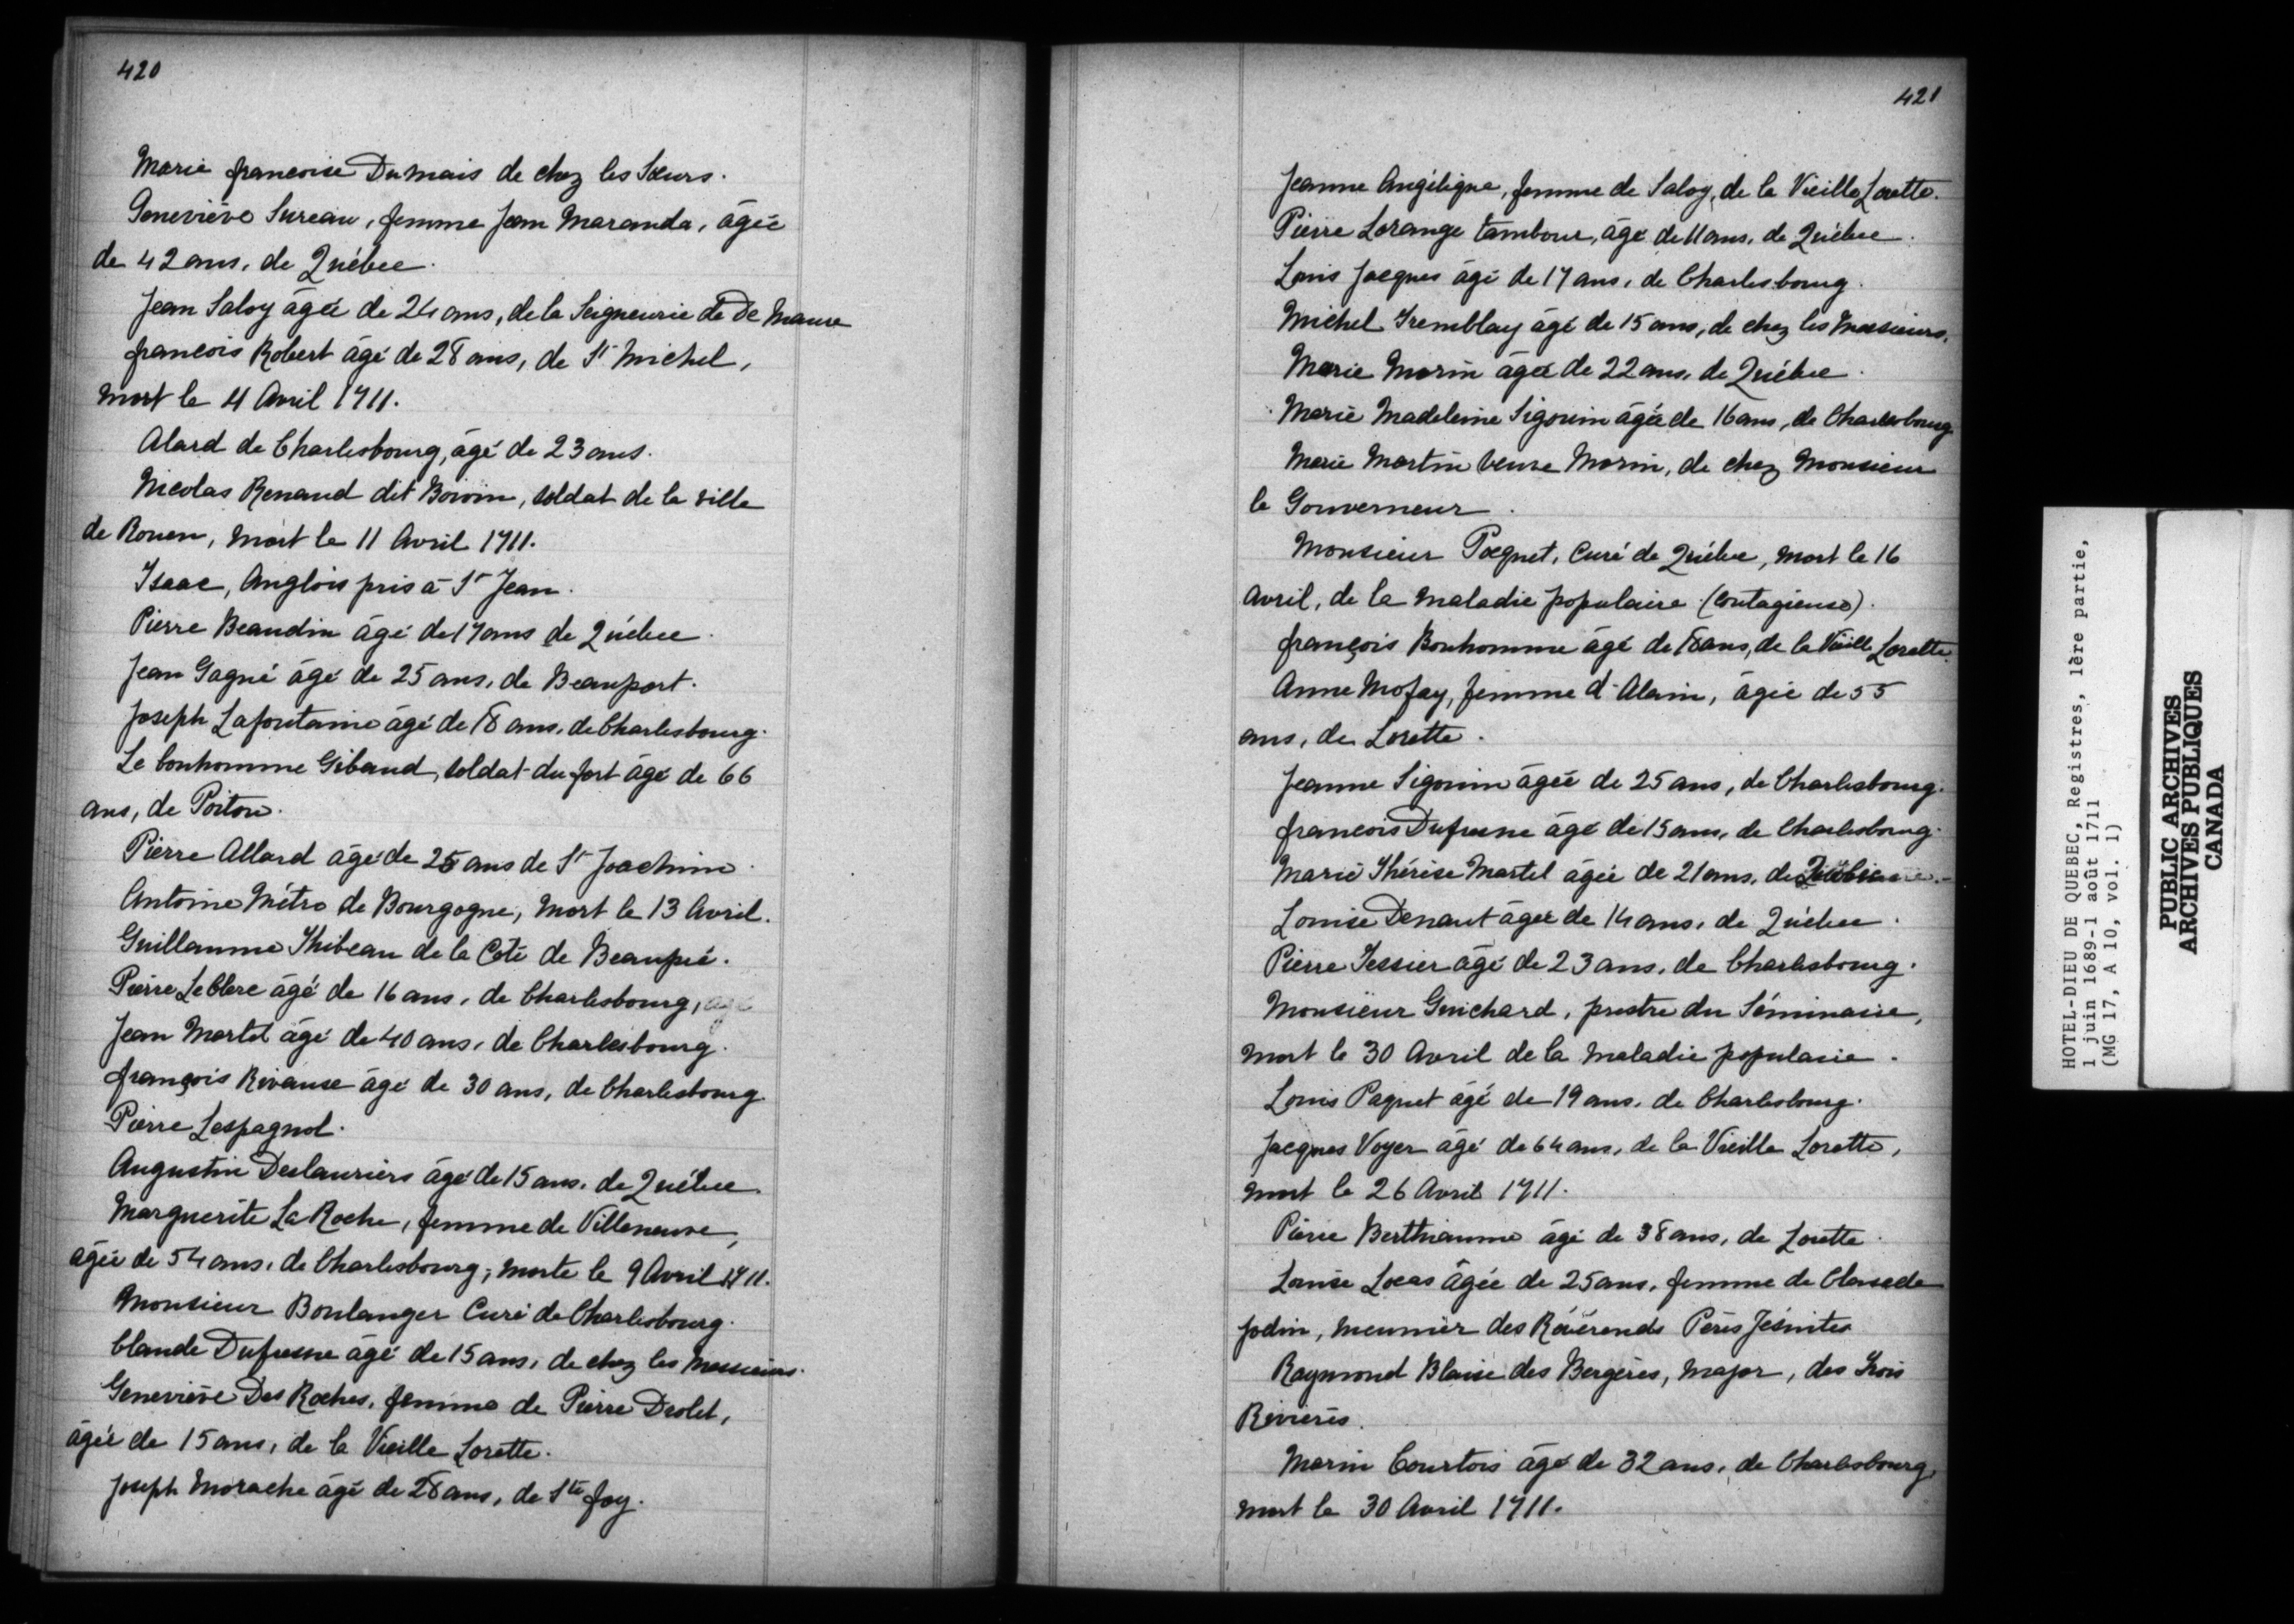 420
Marie francoise Dumais de chez les Sœurs.
Geneviève Sureau, femme Jean Maranda, âgée
de 42 ans, de Québec.
Jean Saloy âgée de 24 ans, de la Seigneurie de De Maure
francois Robert âgé de 28 ans, de St Michel,
mort le 11 Avril 1711.
Alard de Charlesbourg, âgé de 23 ans.
Nicolas Renaud dit Boivin, soldat de la ville
de Rouen, mort le 11 Avril 1711.
Isaac, Anglois pris à St Jean.
Pierre Beaudin âgé de 17 ans de Québec.
Jean Gagné âgé de 25 ans, de Beauport.
Joseph Lafontaine âgé de 18 ans, de Charlesbourg.
Le bonhomme Gibaud, soldat du fort âgé de 66
ans, de Poitou.
Pierre Allard âgé de 25 ans de St Joachim.
Antoine Métro de Bourgogne, mort le 13 Avril.
Guillaume Thibeau de la Coté de Beaupré.
Pierre LeClerc âgé de 16 ans, de Charlesbourg, age
Jean Martel âgé de 40 ans, de Charlesbourg.
françois Rivause âgé de 30 ans, de Charlesbourg.
Pierre Lespagnol.
Augustin Deslauriers âgé de 15 ans, de Québec.
Marguerite La Roche, femme de Villeneuve,
âgée de 54 ans, de Charlesbourg, morte le 9 Avril 1711.
Monsieur Boulanger Curé de Charlesbourg.
Claude Dufresne âgé de 15 ans, de chez les Messieurs.
Geneviève Des Roches, femme de Pierre Drolet,
âgée de 15 ans, de la Vieille Lorette.
Joseph Morache âgé de 28 ans, de Ste foy.
421
Jeanne Angélique, femme de Saloy, de la Vieille Lorette.
Pierre Lorange tambour, âgé de 11 ans, de Québec.
Louis Jacques âgé de 17 ans, de Charlesbourg.
Michel Tremblay âgé de 15 ans, de chez les Messieurs.
Marie Morin âgée de 22 ans, de Québec.
Marie Madeleine Sigouin âgée de 16 ans, de Charlesbourg
Marie Martin veuve Morin, de chez Monsieur
le Gouverneur.
Monsieur Pocquet, Curé de Québec, mort le 16
Avril, de la maladie populaire (contagieuse).
françois Bonhomme âgé de 18 ans, de la Vieille Lorette.
Anne Mofay, femme d'Alain, âgée de 55
ans, de Lorette.
Jeanne Sigouin âgée de 25 ans, de Charlesbourg.
francois Dufresne âgé de 15 ans, de Charlesbourg.
Marie Thérèse Martel âgée de 21 ans, de
Louise Denaut âgée de 14 ans, de Québec.
Pierre Tessier âgé de 23 ans, de Charlesbourg.
Monsieur Guichard, prestre du Séminaire,
mort le 30 Avril de la maladie populaire.
Louis Paquet âgé de 19 ans, de Charlesbourg.
Jacques Voyer âgé de 64 ans, de la Vieille Lorette,
mort le 26 Avril 1711.
Pierre Berthiaume âgé de 38 ans, de Lorette.
Louise Locas âgée de 25 ans, femme de Claude
Jodin, meunier des Révérends Pères Jésuites
Raymond Blaise des Bergères, major, des Trois
Rivières.
Marin Courtois âgé de 32 ans, de Charlesbourg,
mort le 30 Avril 1711.
HOTEL-DIEU DE QUEBEC, Registres, 1ère partie,
1 juin 1689-1 août 1711
(MG 17, A 10, vol. 1)
PUBLIC ARCHIVES
ARCHIVES PUBLIQUES
CANADA